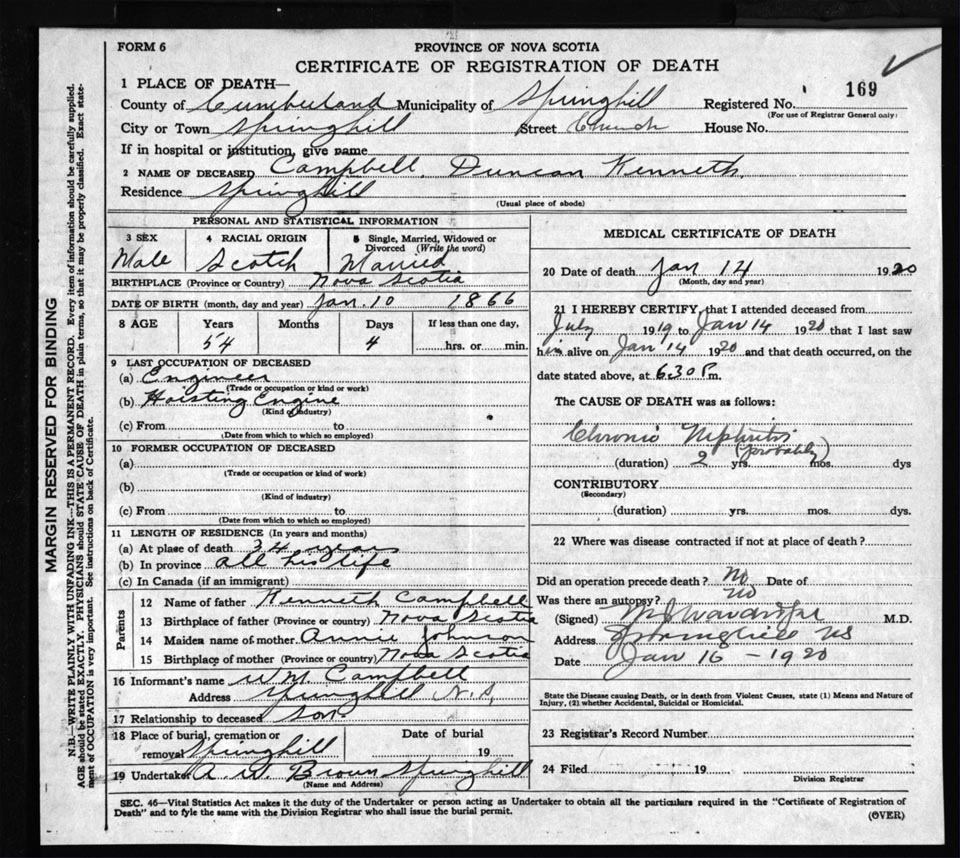 FORM 6
PROVINCE OF NOVA SCOTIA
CERTIFICATE OF REGISTRATION OF DEATH
1 PLACE OF DEATH—
County of Cumberland Municipality of Springhill Registered No. 169
(For use of Registrar General only)
City or Town Springhill Street Church House No.
If in hospital or institution, give name
2 NAME OF DECEASED Campbell, Duncan Kenneth.
Residence Springhill
(Usual place of abode)
PERSONAL AND STATISTICAL INFORMATION
3 SEX 4 RACIAL ORIGIN 5 Single, Married, Widowed or Divorced (Write the word)
Male Scotch Married
BIRTHPLACE (Province or Country) Nova Scotia
DATE OF BIRTH (month, day and year) Jan. 10 1866
8 AGE Years Months Days If less than one day,
54 4 hrs. or min.
9 LAST OCCUPATION OF DECEASED
(a) Engineer
(Trade or occupation or kind or work)
(b) Hoisting Engine
(Kind of industry)
(c) From to
(Date from which to which so employed)
10 FORMER OCCUPATION OF DECEASED
(a)
(Trade or occupation or kind of work)
(b)
(Kind of industry)
(c) From to
(Date from which to which so employed)
11 LENGTH OF RESIDENCE (In years and months)
(a) At place of death 34 years
(b) In province all his life
(c) In Canada (if an immigrant)
Parents
12 Name of father Kenneth Campbell
13 Birthplace of father (Province or country) Nova Scotia
14 Maiden name of mother Annie Johnson
15 Birthplace of mother (Province or country) Nova Scotia
16 Informant's name Wm. Campbell
Address Springhill N.S,
17 Relationship to deceased son
18 Place of burial, cremation or Date of burial
removal Springhill 19
19 Undertaker A. W. Brown Springhill
(Name and Address)
MEDICAL CERTIFICATE OF DEATH
20 Date of death Jan 14 1920
(Month, day and year)
21 I HEREBY CERTIFY, that I attended deceased from
July 1919 to Jan 14 1920 that I last saw
him alive on Jan 14 1920 and that death occurred, on the
date stated above, at 6.30 P.m.
The CAUSE OF DEATH was as follows:
Chronic Nephritis
(probably)
(duration) 2 yrs. mos. dys
CONTRIBUTORY
(Secondary)
(duration) yrs. mos. dys.
22 Where was disease contracted if not at place of death?
Did an operation precede death? No Date of
Was there an autopsy? no
(Signed) M.D.
Address Springhill NS
Date Jan 16 - 1920
State the Disease causing Death, or in death from Violent Causes, state (1) Means and Nature of
Injury, (2) whether Accidental, Suicidal or Homicidal.
23 Registrar's Record Number
24 Filed 19
Division Registrar
SEC. 46—Vital Statistics Act makes it the duty of the Undertaker or person acting as Undertaker to obtain all the particulars required in the "Certificate of Registration of
Death" and to fyle the same with the Division Registrar who shall issue the burial permit.
(OVER)
MARGIN RESERVED FOR BINDING
N.B.—WRITE PLAINLY WITH UNFADING INK—THIS IS A PERMANENT RECORD. Every item of information should be carefully supplied.
AGE should be stated EXACTLY. PHYSICIANS should STATE CAUSE OF DEATH in plain terms, so that it may be properly classified. Exact state-
ment of OCCUPATION is very important. See instructions on back of Certificate.